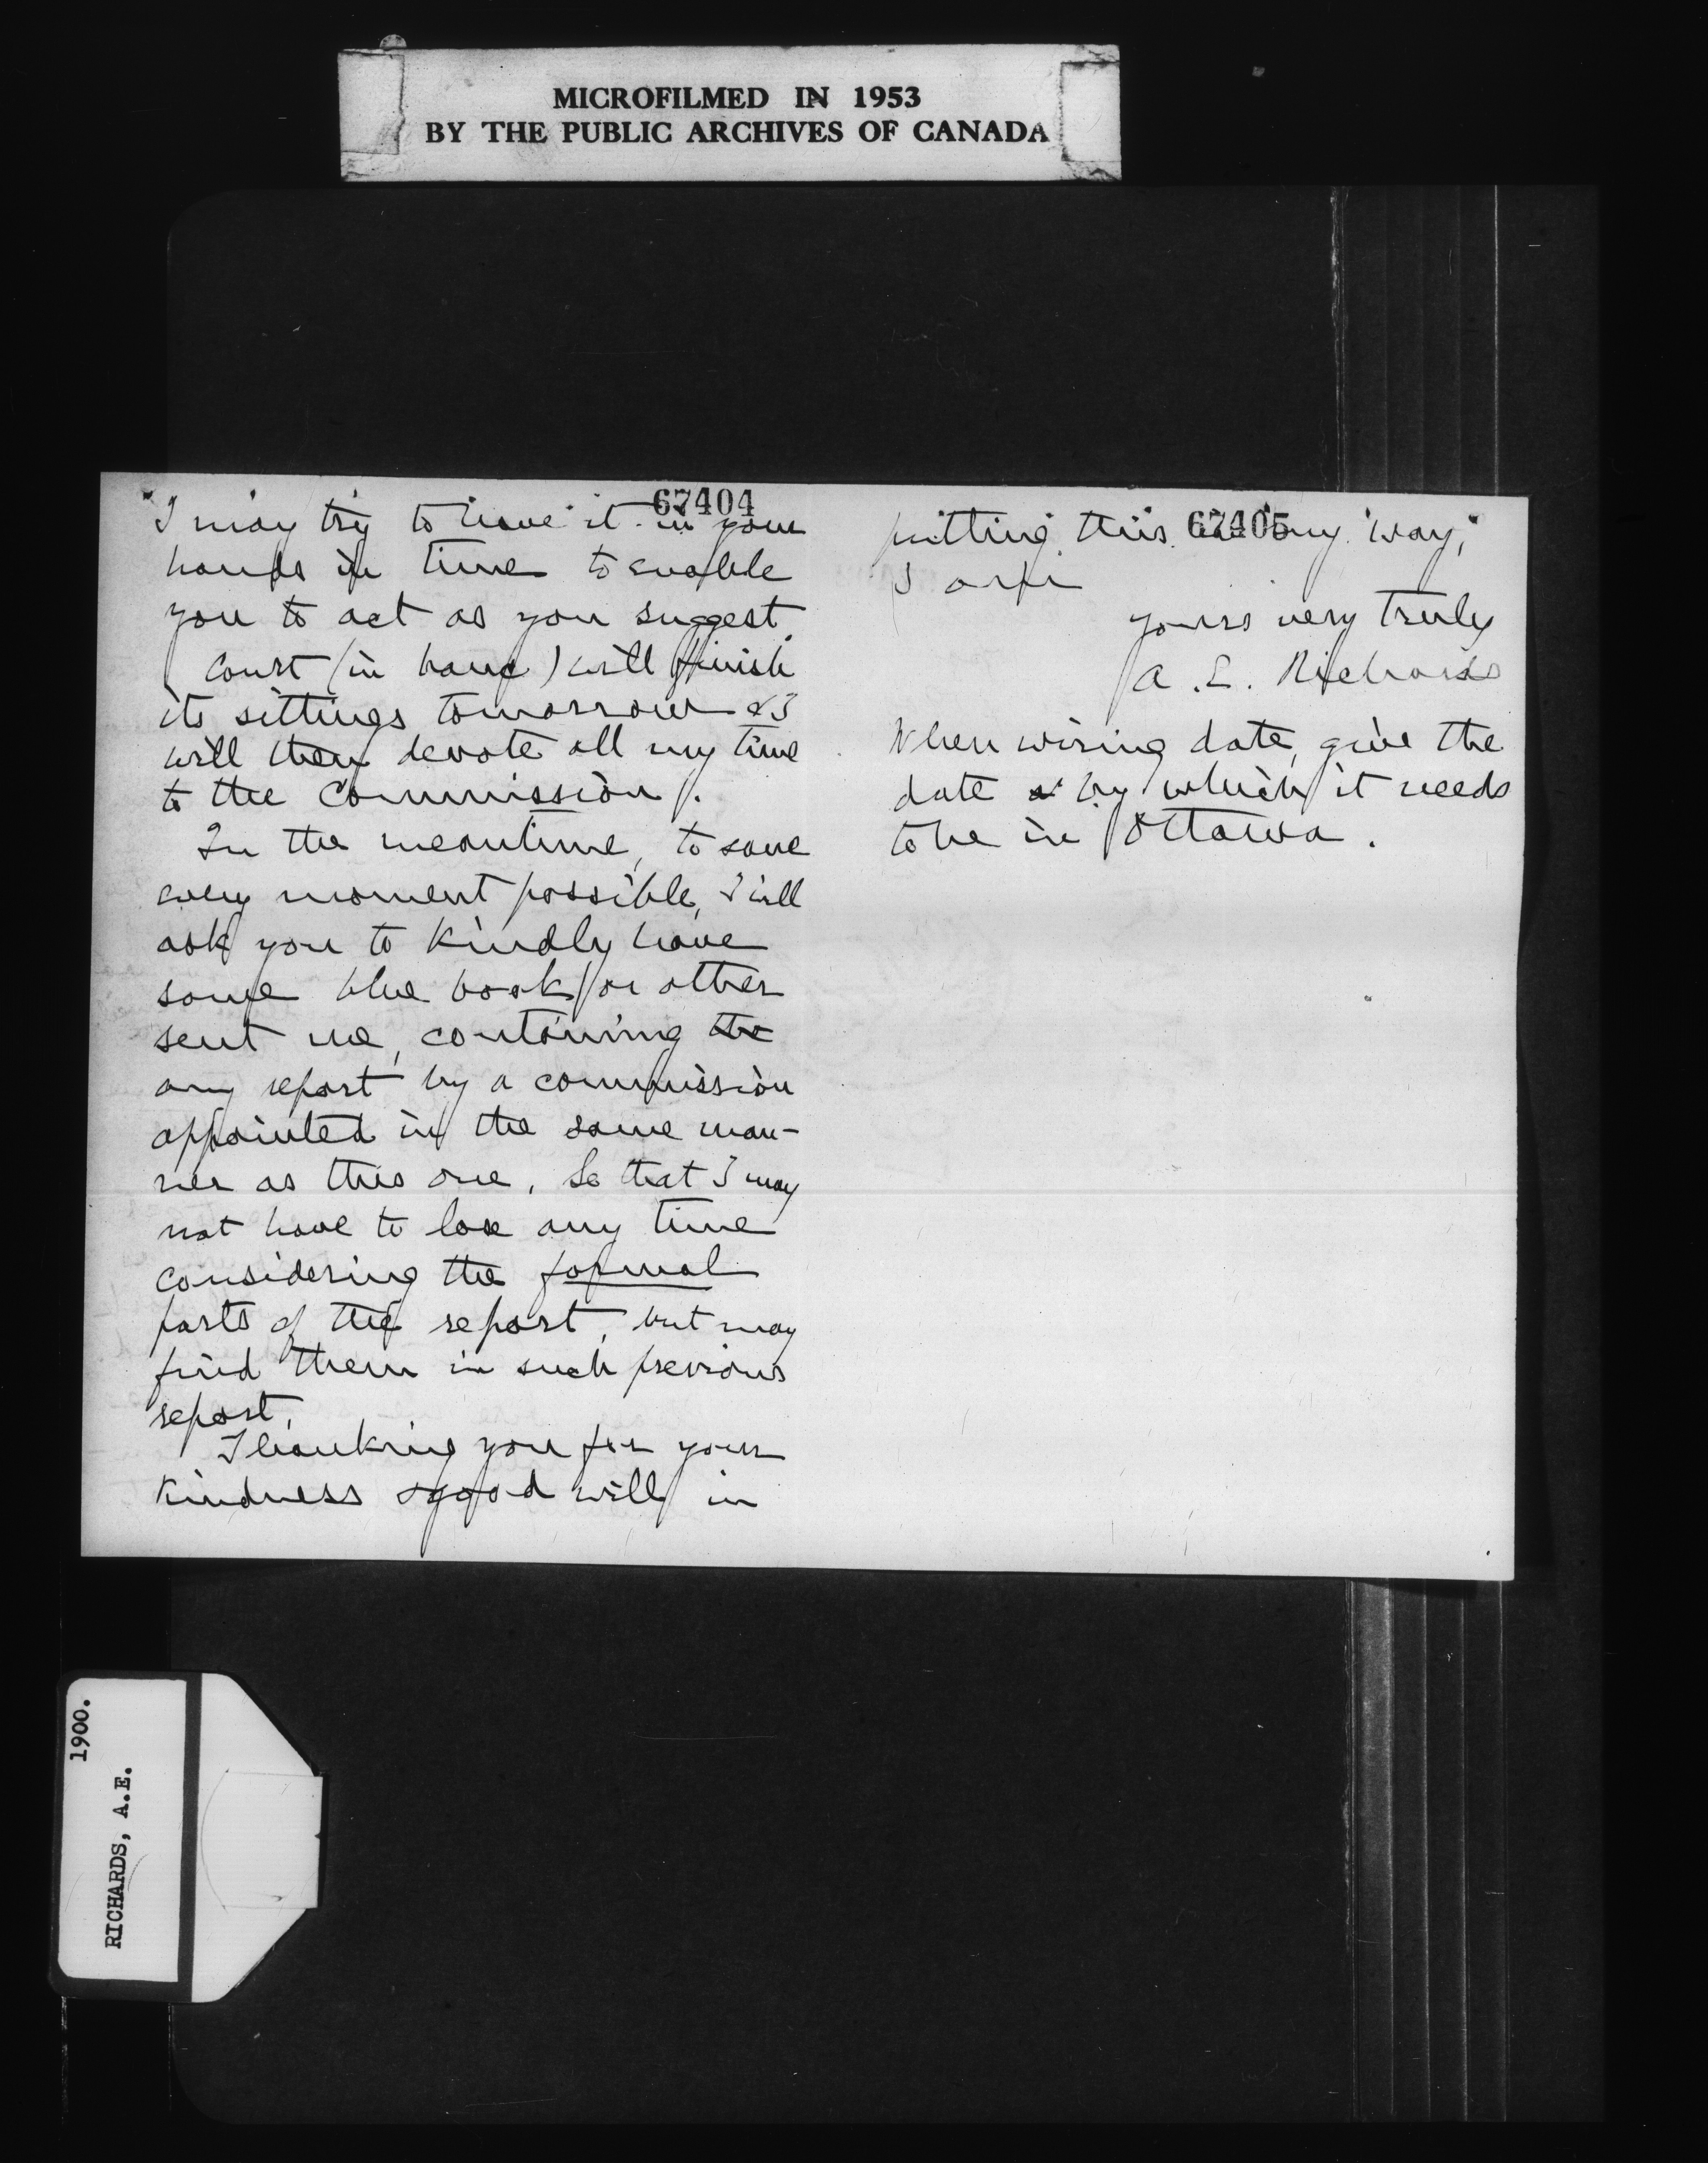 MICROFILMED IN 1953
BY THE PUBLIC ARCHIVES OF CANADA
67404
I may try to have it in your
hands in time to enable
you to act as you suggest.
Court (in banc) will finish
its sittings tomorrow & I
will then devote all my time
to the Commission.
In the meantime, to save
every moment possible, I will
ask you to kindly have
some blue book or other
sent me, containing the
any report by a commission
appointed in the same man-
ner as this one, so that I may
not have to lose any time
considering the formal
parts of the report, but may
find them in such previous
report.
Thanking you for your
kindness & good will in
67405
putting this in my way,
I am
yours very truly
A. E. Richards
When wiring date, give the
date by which it needs
to be in Ottawa.
1900.
RICHARDS, A.E.